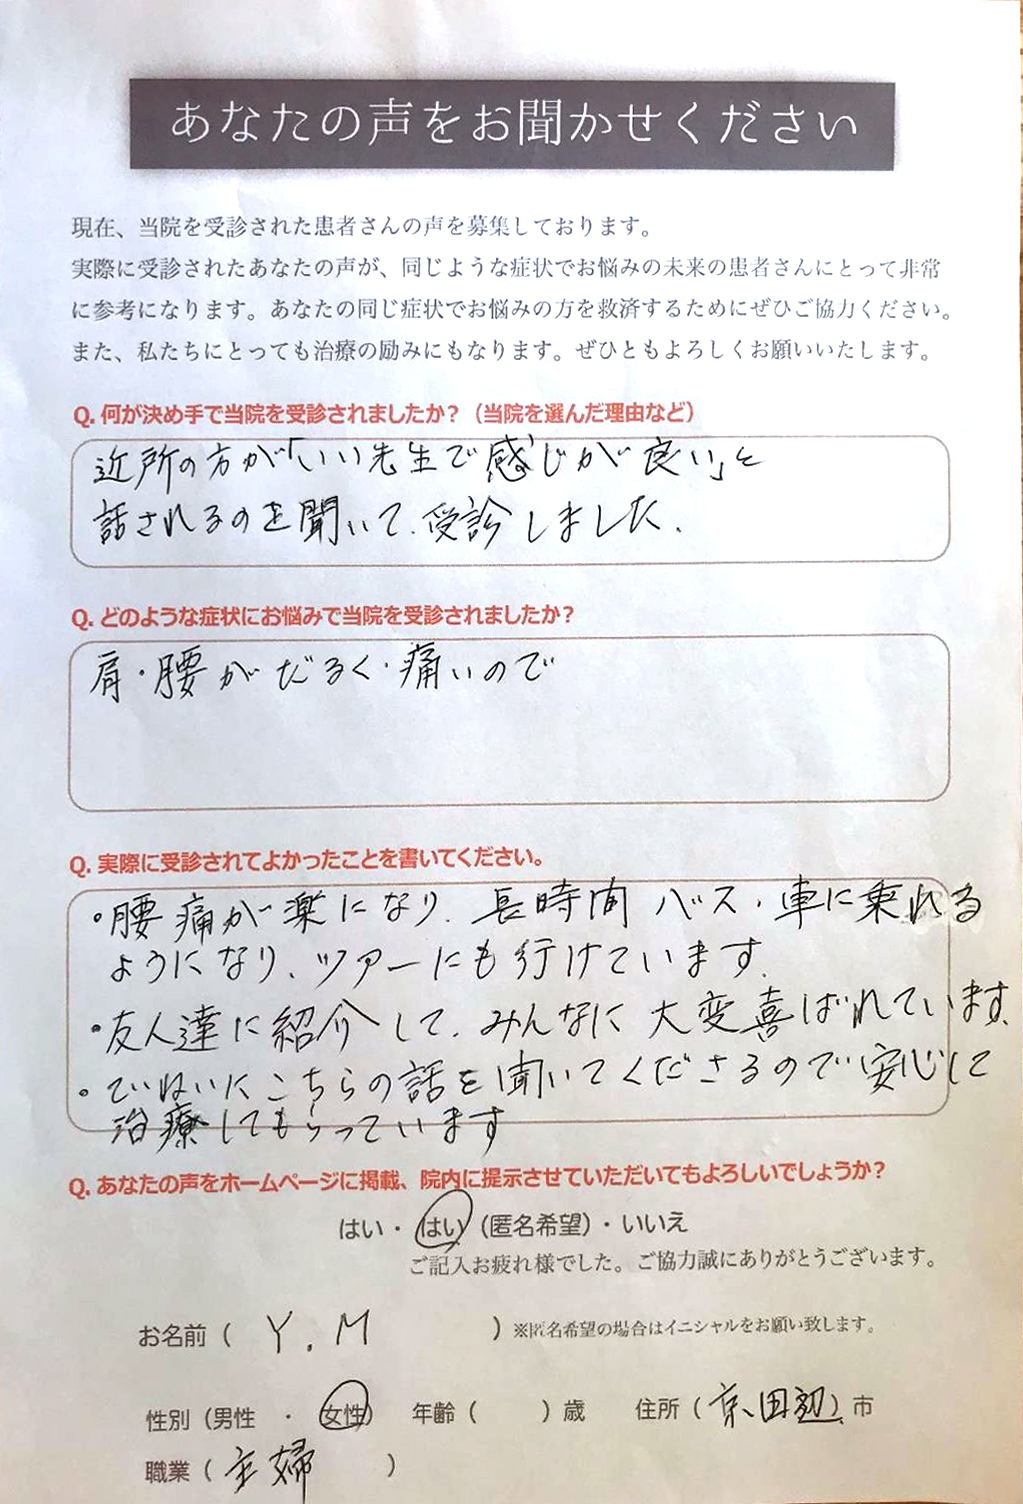 あなたの声をお聞かせください
現在、当院を受診された患者さんの声を募集しております。
実際に受診されたあなたの声が、同じような症状でお悩みの未来の患者さんにとって非常
に参考になります。あなたの同じ症状でお悩みの方を救済するためにぜひご協力ください。
また、私たちにとっても治療の励みにもなります。ぜひともよろしくお願いいたします。
Q. 何が決め手で当院を受診されましたか？（当院を選んだ理由など）
近所の方が「いい先生で感じが良い」と
話されるのを聞いて、受診しました。
Q. どのような症状にお悩みで当院を受診されましたか？
肩・腰がだるく・痛いので
Q. 実際に受診されてよかったことを書いてください。
・腰痛が楽になり、長時間バス・車に乗れる
ようになり、ツアーにも行けています。
・友人達に紹介して、みんなに大変喜ばれています。
・ていねいにこちらの話を聞いてくださるので安心して
治療してもらっています
Q. あなたの声をホームページに掲載、院内に提示させていただいてもよろしいでしょうか？
はい・はい（匿名希望）・いいえ
ご記入お疲れ様でした。ご協力誠にありがとうございます。
お名前（ Y.M ）※匿名希望の場合はイニシャルをお願い致します。
性別（男性 ・ 女性） 年齢（ ）歳 住所（京田辺）市
職業（主婦 ）